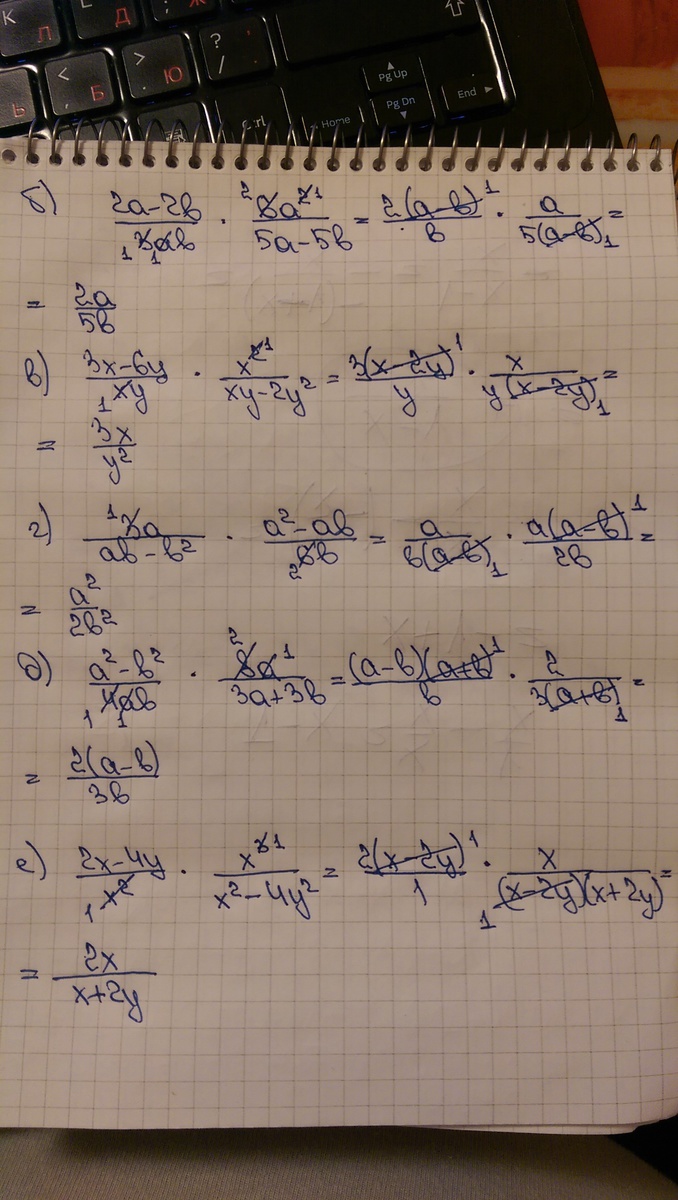 К Л Д Ж
Ь < , Б > . Ю ? / Pg Up
Ctrl Home Pg Dn End
б) (2a-2b)/(3ab) · (6a²)/(5a-5b) = 2(a-b)/b · a/(5(a-b)) =
= 2a/5b
в) (3x-6y)/(xy) · x²/(xy-2y²) = 3(x-2y)/y · x/(y(x-2y)) =
= 3x/y²
г) 3a/(ab-b²) · (a²-ab)/(6b) = a/(b(a-b)) · a(a-b)/(2b) =
= a²/2b²
д) (a²-b²)/(4ab) · 8a/(3a+3b) = (a-b)(a+b)/b · 2/(3(a+b)) =
= 2(a-b)/3b
е) (2x-4y)/x² · x²/(x²-4y²) = 2(x-2y)/1 · x/((x-2y)(x+2y)) =
= 2x/(x+2y)